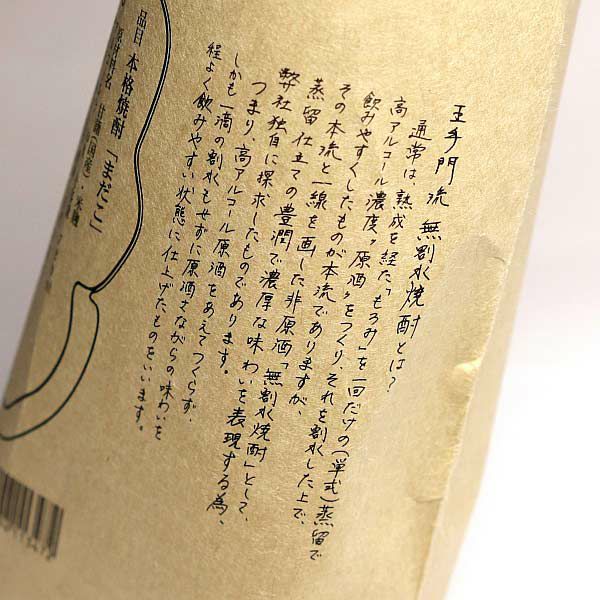 王手門流 無割水焼酎とは?
通常は、熟成を経た「もろみ」を一回だけの(単式)蒸留で
高アルコール濃度〝原酒〟をつくり、それを割水した上で、
飲みやすくしたものが本流でありますが、
その本流と一線を画した非原酒「無割水焼酎」として、
蒸留仕立ての豊潤で濃厚な味わいを表現する為、
弊社独自に探求したものであります。
つまり、高アルコール原酒をあえてつくらず、
しかも一滴の割水もせずに原酒さながらの味わいを
程よく飲みやすい状態に仕上げたものをいいます。
品目 本格焼酎「まだこ」
原材料名 甘藷(国産)・米麹